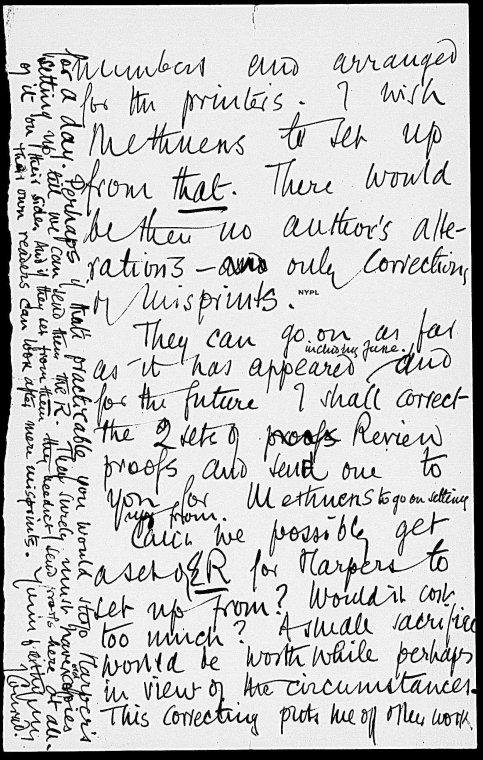 numbers and arranged
for the printers. I wish
Methuens to set up
from that. There would
be then no author's alte-
rations – only corrections
of misprints.
NYPL
They can go on as far
as it has appeared including June. and
for the future I shall correct
the 2 sets of proofs Review
proofs and send one to
you for Methuens to go on setting
up from.
Can we possibly get
a set of ER for Harpers to
set up from? Would it cost
too much? A small sacrifice
would be worth while perhaps
in view of the circumstances.
This correcting puts me off other work
for a day. Perhaps if that's practicable you would stop Harper's
setting up till we can send them the R. They surely must have
of it on their side. And if they set from them they needn't send proofs here at all.
Their own readers can look after mere misprints. Yours
Conrad.